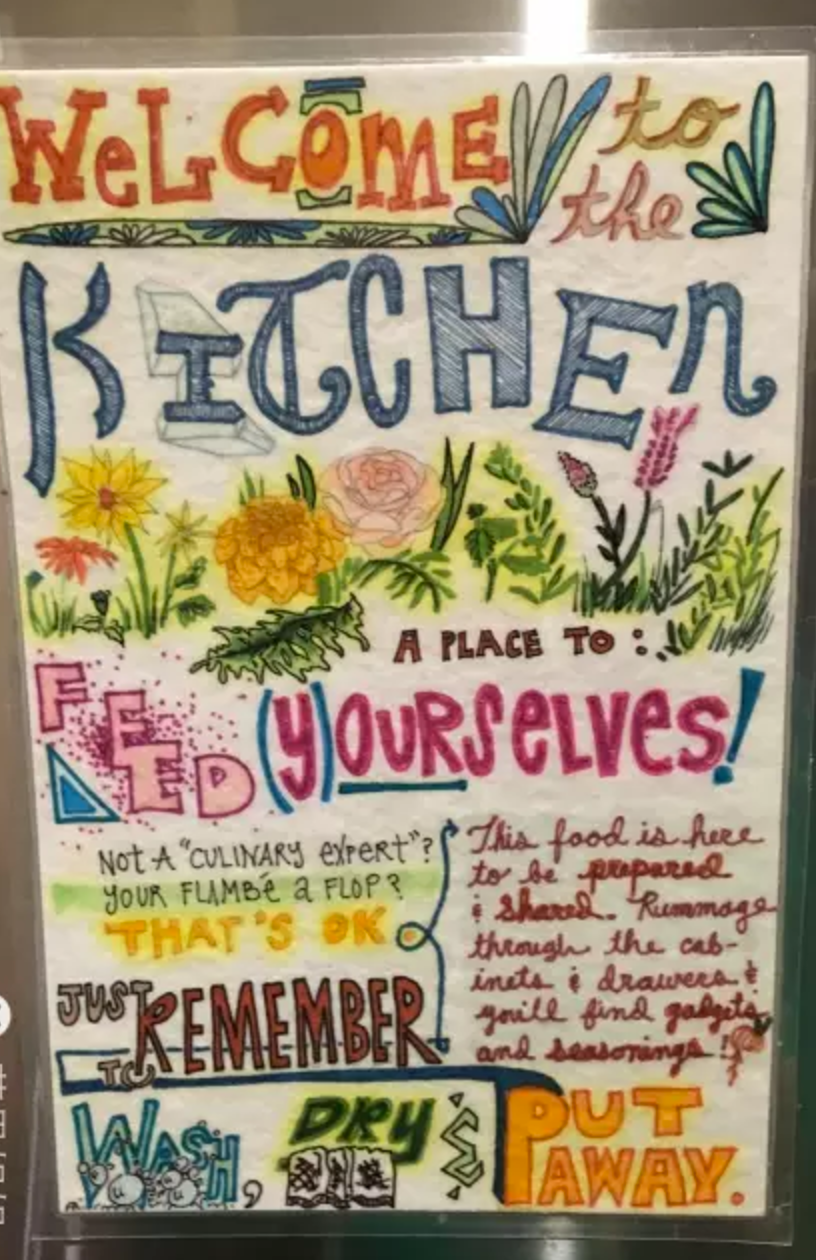 WeLCOME to
the
KITCHEn
A PLACE TO :
FEED (y)OURSELVES!
NOT A "CULINARY EXPERT"?
YOUR FLAMBÉ A FLOP?
THAT'S OK
This food is here
to be prepared
& shared. Rummage
through the cab-
inets & drawers &
you'll find gadgets
and seasonings!
JUST REMEMBER
TO
WASH, DRY & PUT
AWAY.